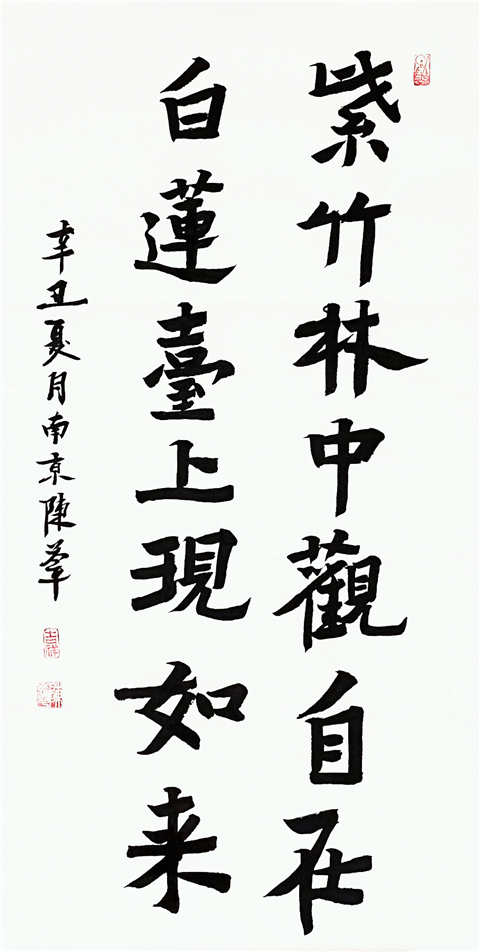 紫竹林中觀自在
白蓮臺上現如来
辛丑夏月南京陳華